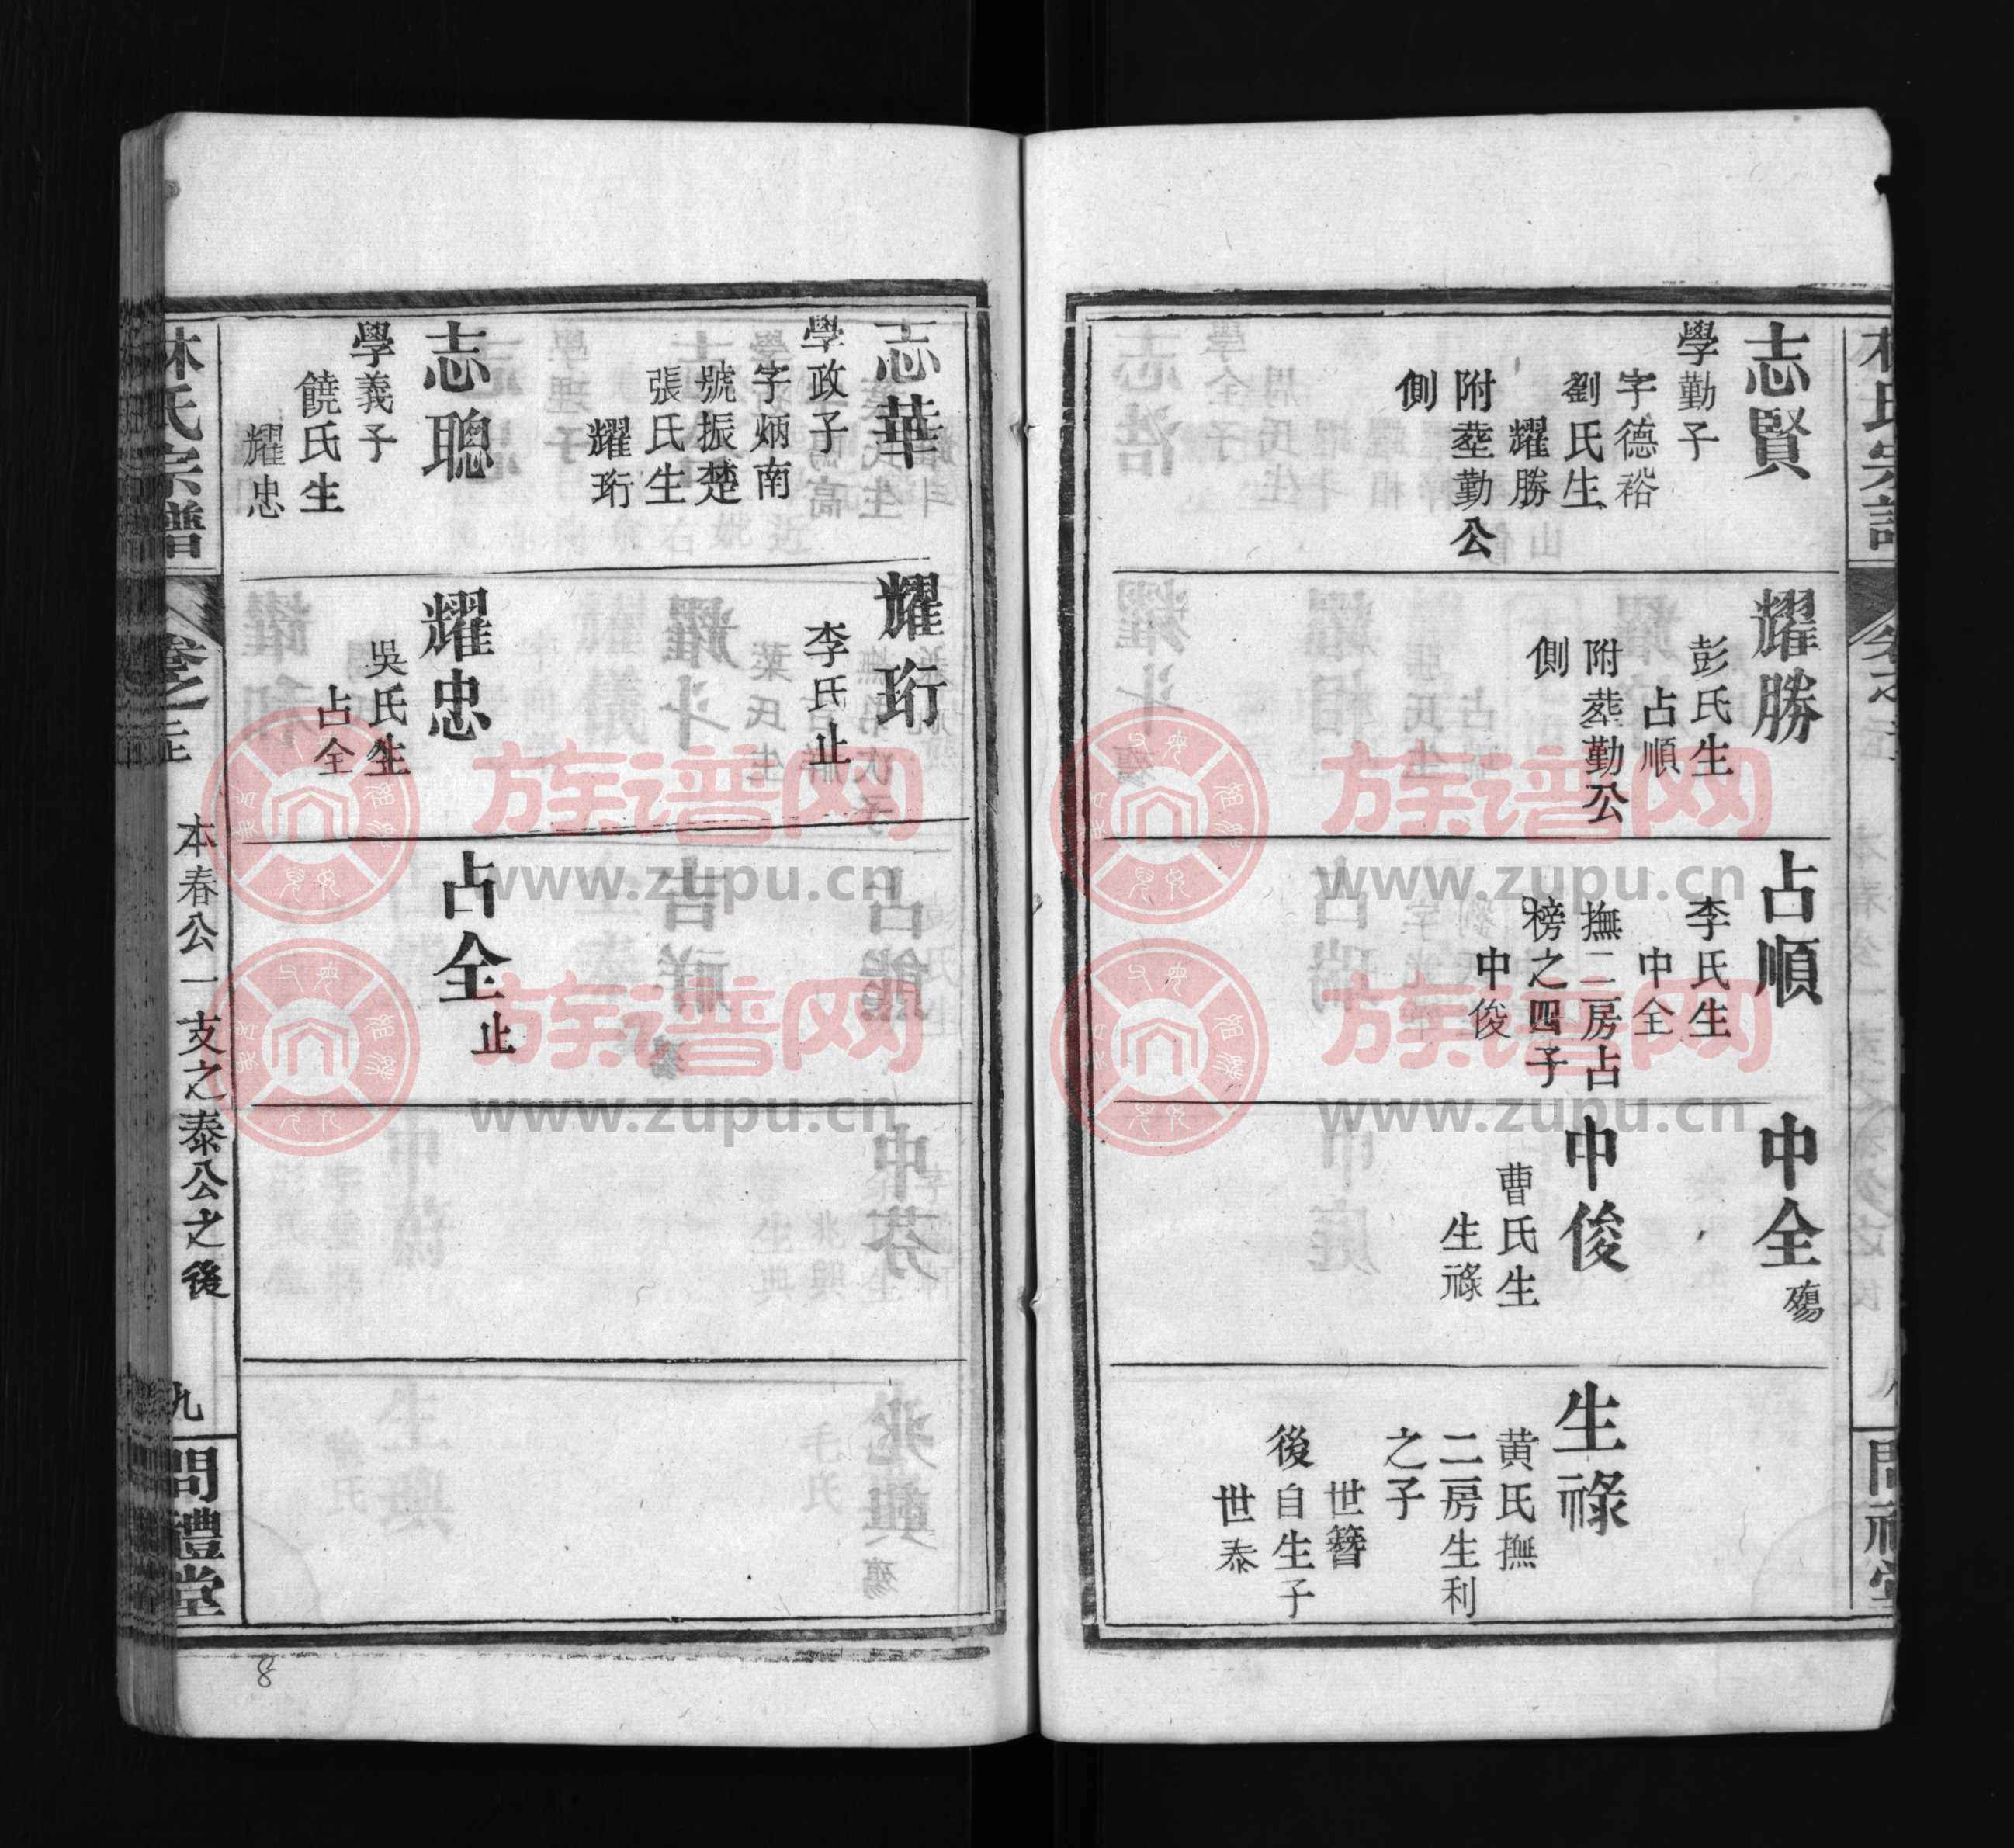 志賢
學勤子
字德裕
劉氏生
耀勝
附塟勤公
側
耀勝
彭氏生
占順
附塟勤公
側
占順
李氏生
中全
撫二房占
榜之四子
中俊
中全殤
中俊
曹氏生
生祿
生祿
黄氏撫
二房生利
之子
世簪
後自生子
世泰
志華
學政子
字炳南
號振楚
張氏生
耀珩
志聰
學義子
饒氏生
耀忠
耀珩
李氏止
耀忠
吳氏生
占全
占全止
林氏宗譜
卷之
本春公一支之泰公之後
九
問禮堂
8
族谱网
www.zupu.cn
族谱网
www.zupu.cn
族谱网
www.zupu.cn
族谱网
www.zupu.cn